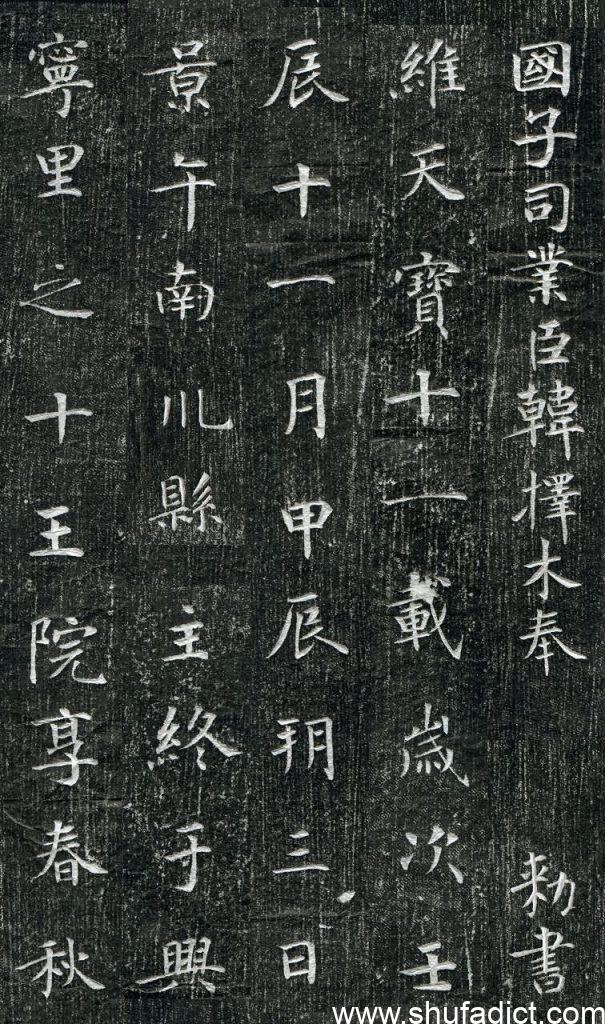 國子司業臣韓擇木奉 勑書
維天寶十一載歲次壬
辰十一月甲辰玥三日
景午南川縣 主終于興
寧里之十王院享春秋
www.shufadict.com